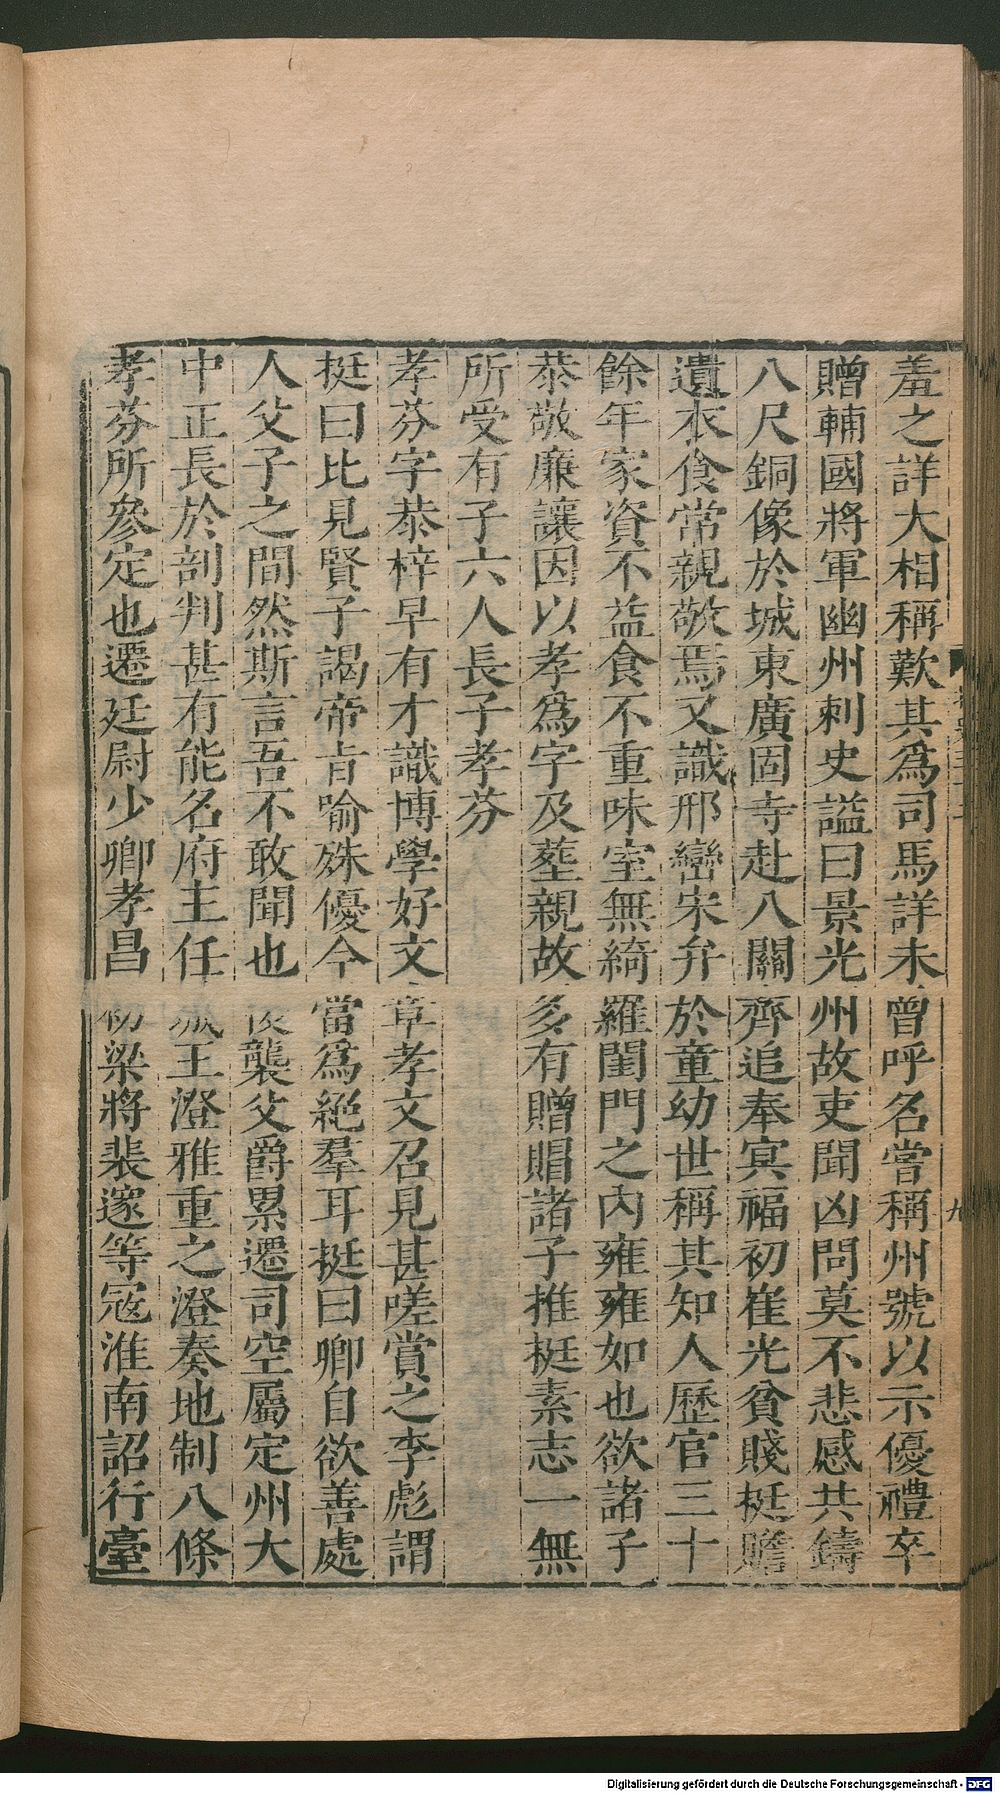 羞之詳大相稱歎其為司馬詳未曾呼名嘗稱州號以示優禮卒
贈輔國將軍幽州刺史謚曰景光州故吏聞凶問莫不悲感共鑄
八尺銅像於城東廣固寺赴八關齊追奉冥福初崔光貧賤挺贍
遺衣食常親敬焉又識邢巒宋弁於童幼世稱其知人歷官三十
餘年家資不益食不重味室無綺羅閨門之內雍雍如也欲諸子
恭敬廉讓因以孝為字及塟親故多有贈賵諸子推挺素志一無
所受有子六人長子孝芬
孝芬字恭梓早有才識博學好文章孝文召見甚嗟賞之李彪謂
挺曰比見賢子謁帝旨喻殊優今當為絕羣耳挺曰卿自欲善處
人父子之間然斯言吾不敢聞也後襲父爵累遷司空屬定州大
中正長於剖判甚有能名府主任城王澄雅重之澄奏地制八條
孝芬所參定也遷廷尉少卿孝昌初梁將裴邃等寇淮南詔行臺
九
Digitalisierung gefördert durch die Deutsche Forschungsgemeinschaft - DFG